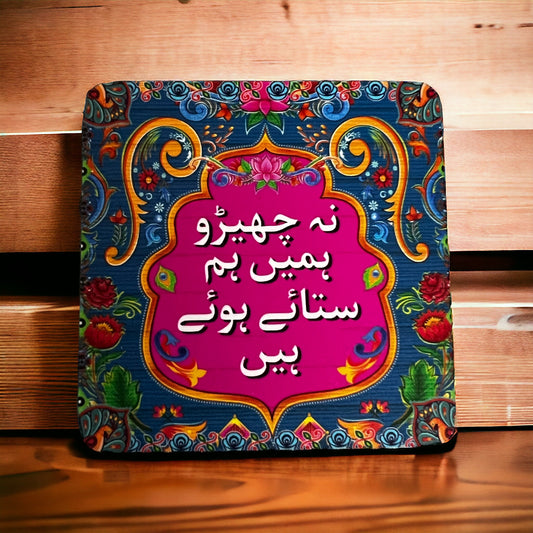 نہ چھیڑو
ہمیں ہم
ستائے ہوئے
ہیں